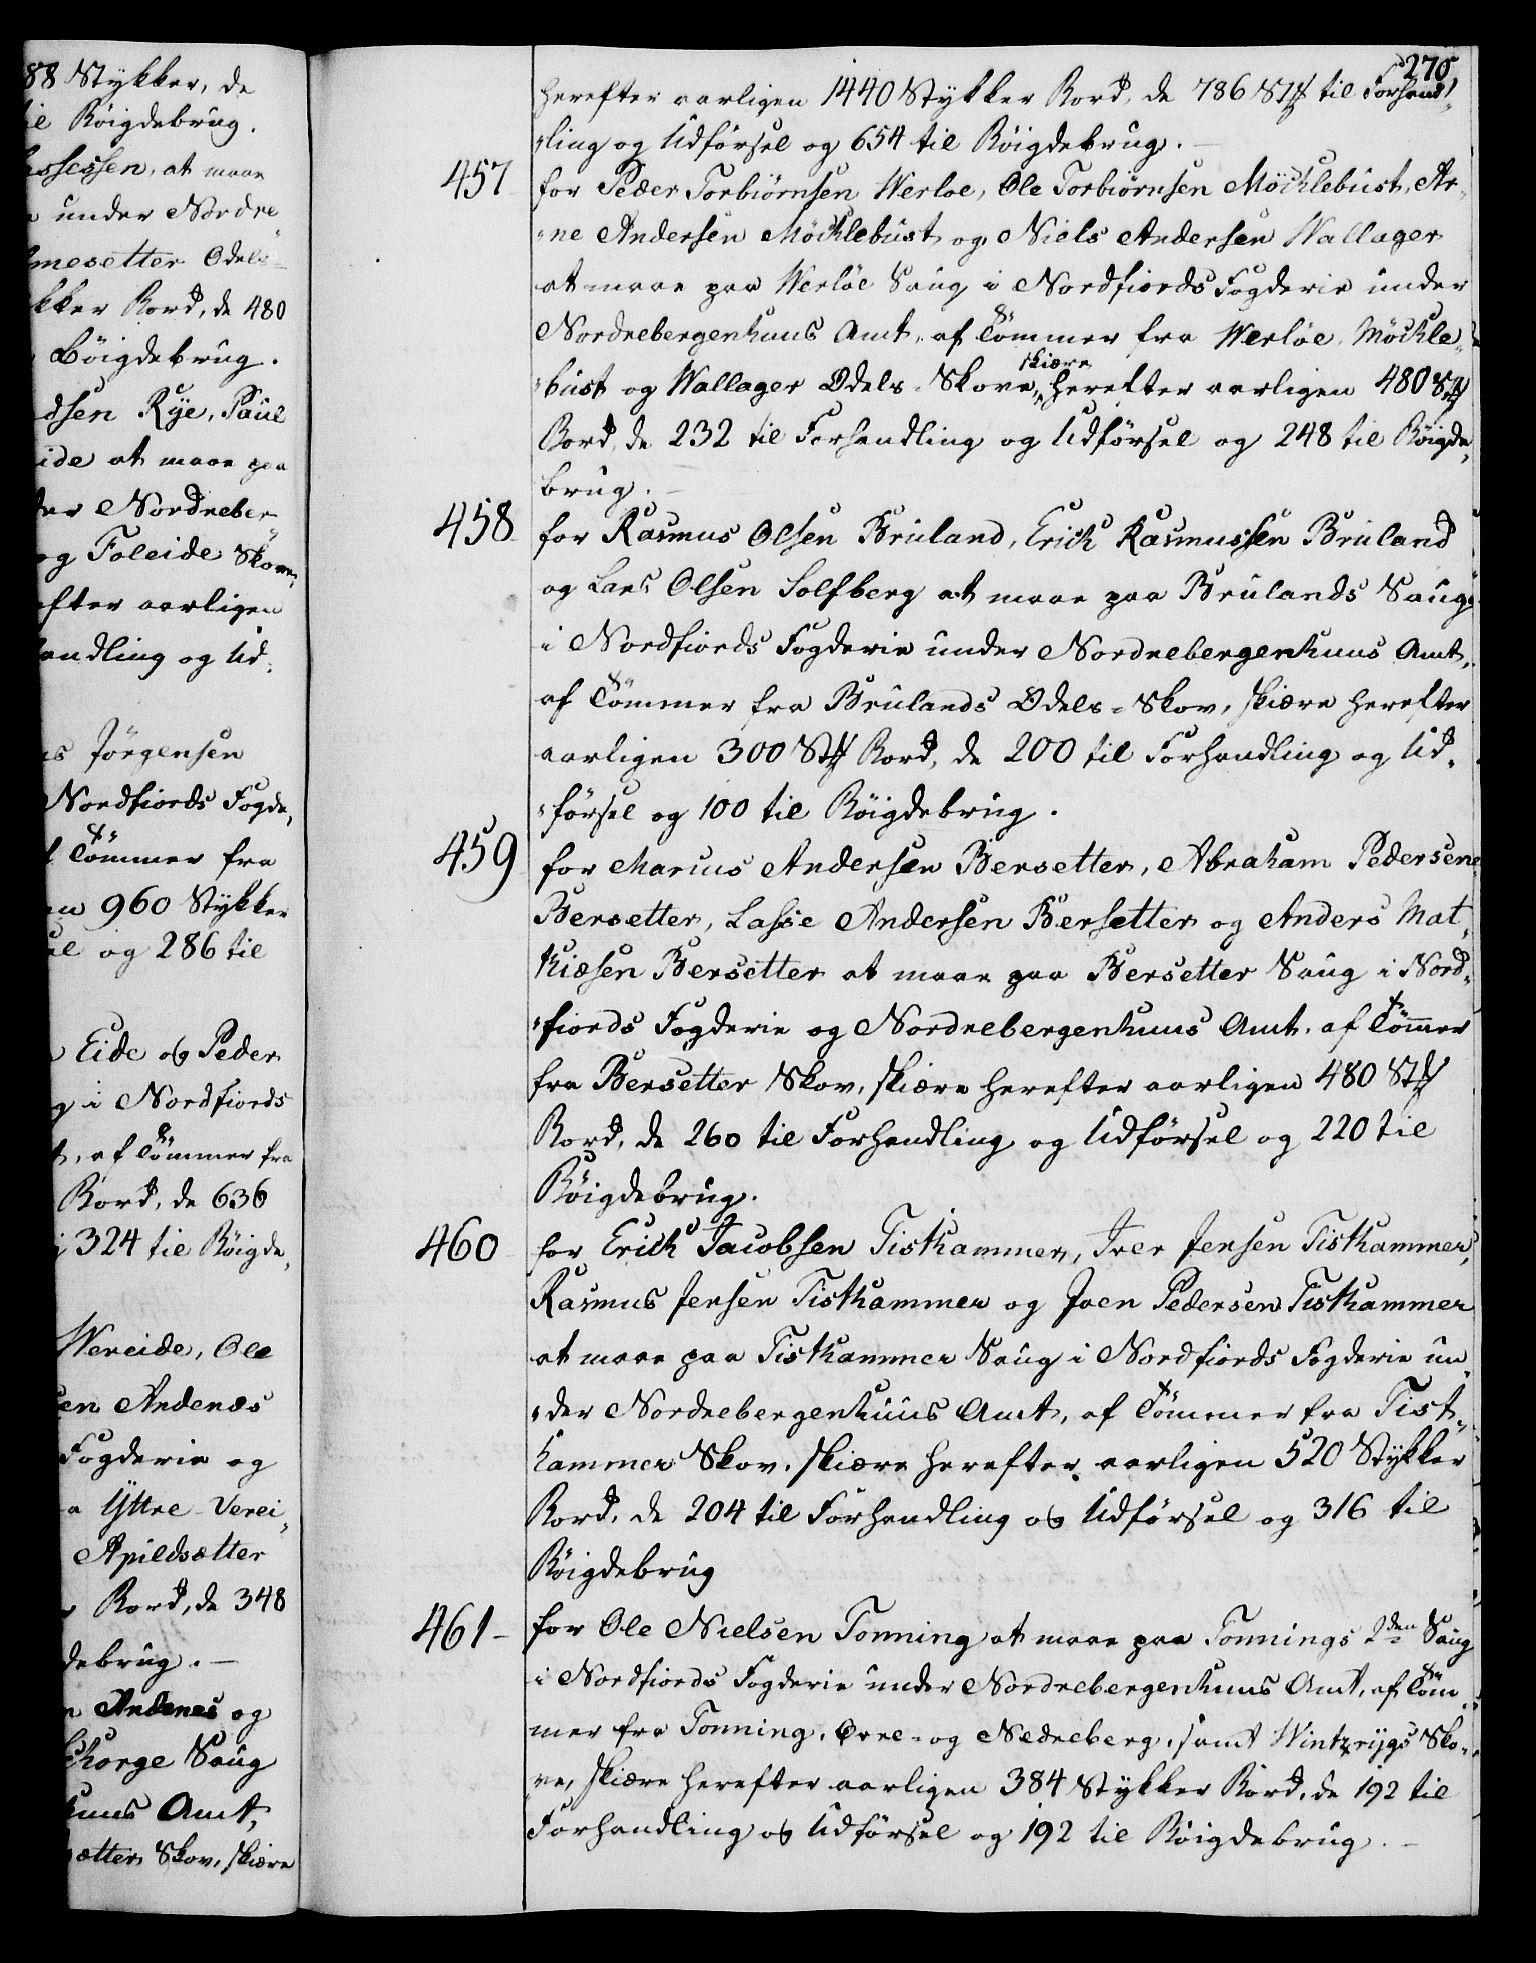 88 Stykker, de
Bøigdebrug.
at maae
under Nordre
mesetter Odels-
kker Bord, de 480
Bøigdebrug.
dsen Rye, Paul
ide at maae paa
der Nordreber-
og Foleide Skove,
efter aarligen
handling og Ud-
Jørgensen
Nordfiords Fogde,
Tømmer fra
960 Stykker
og 286 til
Eide og Peder
i Nordfiords
af Tømmer fra
Bord, de 636
324 til Bøigde,
Wereide, Ole
Andenæs
Fogderie og
Yttre-Verei,
Apildsætter
Bord, de 348
debrug. —
Andenes og
Saug
huus Amt,
ætter Skov, skiære
270
herefter aarligen 1440 Stykker Bord, de 786 Stk til Forhand-
-ling og Udførsel og 654 til Bøigdebrug. —
457 for Peder Torbiørnsen Werloe, Ole Torbiørnsen Möcklebust, Ar-
-ne Andersen Möcklebust og Niels Andersen Wallager
at maae paa Werløe Saug i Nordfiords Fogderie under
Nordrebergenhuus Amt, af Tømmer fra Werløe, Möckle-
-bust og Wallager Odels-Skove, skiære herefter aarligen 480 Stk
Bord, de 232 til Forhandling og Udførsel og 248 til Bøigde-
brug. —
458 for Rasmus Olsen Bruland, Erich Rasmussen Bruland
og Lars Olsen Solfberg at maae paa Brulands Saug
i Nordfiords Fogderie under Nordrebergenhuus Amt,
af Tømmer fra Brulands Odels-Skov, skiære herefter
aarligen 300 Stk Bord, de 200 til Forhandling og Ud-
-førsel og 100 til Bøigdebrug.
459 for Marius Andersen Bersetter, Abraham Pedersen
Bersetter, Lasse Andersen Bersetter og Anders Mat-
hiæsen Bersetter at maae paa Bersetter Saug i Nord-
-fiords Fogderie og Nordrebergenhuus Amt, af Tømmer
fra Bersetter Skov, skiære herefter aarligen 480 Stk
Bord, de 260 til Forhandling og Udførsel og 220 til
Bøigdebrug.
460 for Erich Jacobsen Tisthammer, Iver Jensen Tisthammer,
Rasmus Jensen Tisthammer og Joen Pedersen Tisthammer
at maae paa Tisthammer Saug i Nordfiords Fogderie un-
-der Nordrebergenhuus Amt, af Tømmer fra Tist-
hammer Skov, skiære herefter aarligen 520 Stykker
Bord, de 204 til Forhandling og Udførsel og 316 til
Bøigdebrug
461- for Ole Nielsen Tonning at maae paa Tonnings 2den Saug
i Nordfiords Fogderie under Nordrebergenhuus Amt, af Tøm-
mer fra Tonning, Øvre- og Nedreberg, samt Wintzrygs Sko-
ve, skiære herefter aarligen 384 Stykker Bord, de 192 til
Forhandling og Udførsel og 192 til Bøigdebrug. —